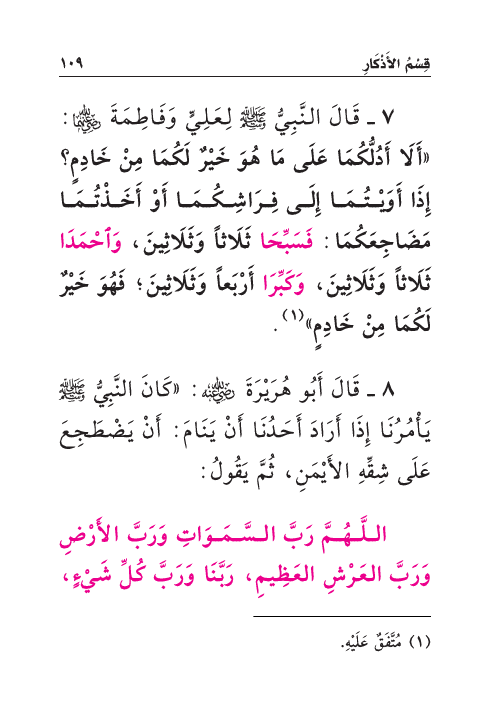 قِسْمُ الأَذْكَارِ ١٠٩
٧ ـ قَالَ النَّبِيُّ ﷺ لِعَلِيٍّ وَفَاطِمَةَ رضي الله عنهما :
«أَلَا أَدُلُّكُمَا عَلَى مَا هُوَ خَيْرٌ لَكُمَا مِنْ خَادِمٍ؟
إِذَا أَوَيْتُمَا إِلَى فِرَاشِكُمَا أَوْ أَخَذْتُمَا
مَضَاجِعَكُمَا : فَسَبِّحَا ثَلَاثاً وَثَلَاثِينَ، وَٱحْمَدَا
ثَلَاثاً وَثَلَاثِينَ، وَكَبِّرَا أَرْبَعاً وَثَلَاثِينَ؛ فَهُوَ خَيْرٌ
لَكُمَا مِنْ خَادِمٍ»(١) .
٨ ـ قَالَ أَبُو هُرَيْرَةَ رضي الله عنه : «كَانَ النَّبِيُّ ﷺ
يَأْمُرُنَا إِذَا أَرَادَ أَحَدُنَا أَنْ يَنَامَ : أَنْ يَضْطَجِعَ
عَلَى شِقِّهِ الأَيْمَنِ، ثُمَّ يَقُولُ :
اللَّهُمَّ رَبَّ السَّمَوَاتِ وَرَبَّ الأَرْضِ
وَرَبَّ العَرْشِ العَظِيمِ، رَبَّنَا وَرَبَّ كُلِّ شَيْءٍ،
(١) مُتَّفَقٌ عَلَيْهِ.